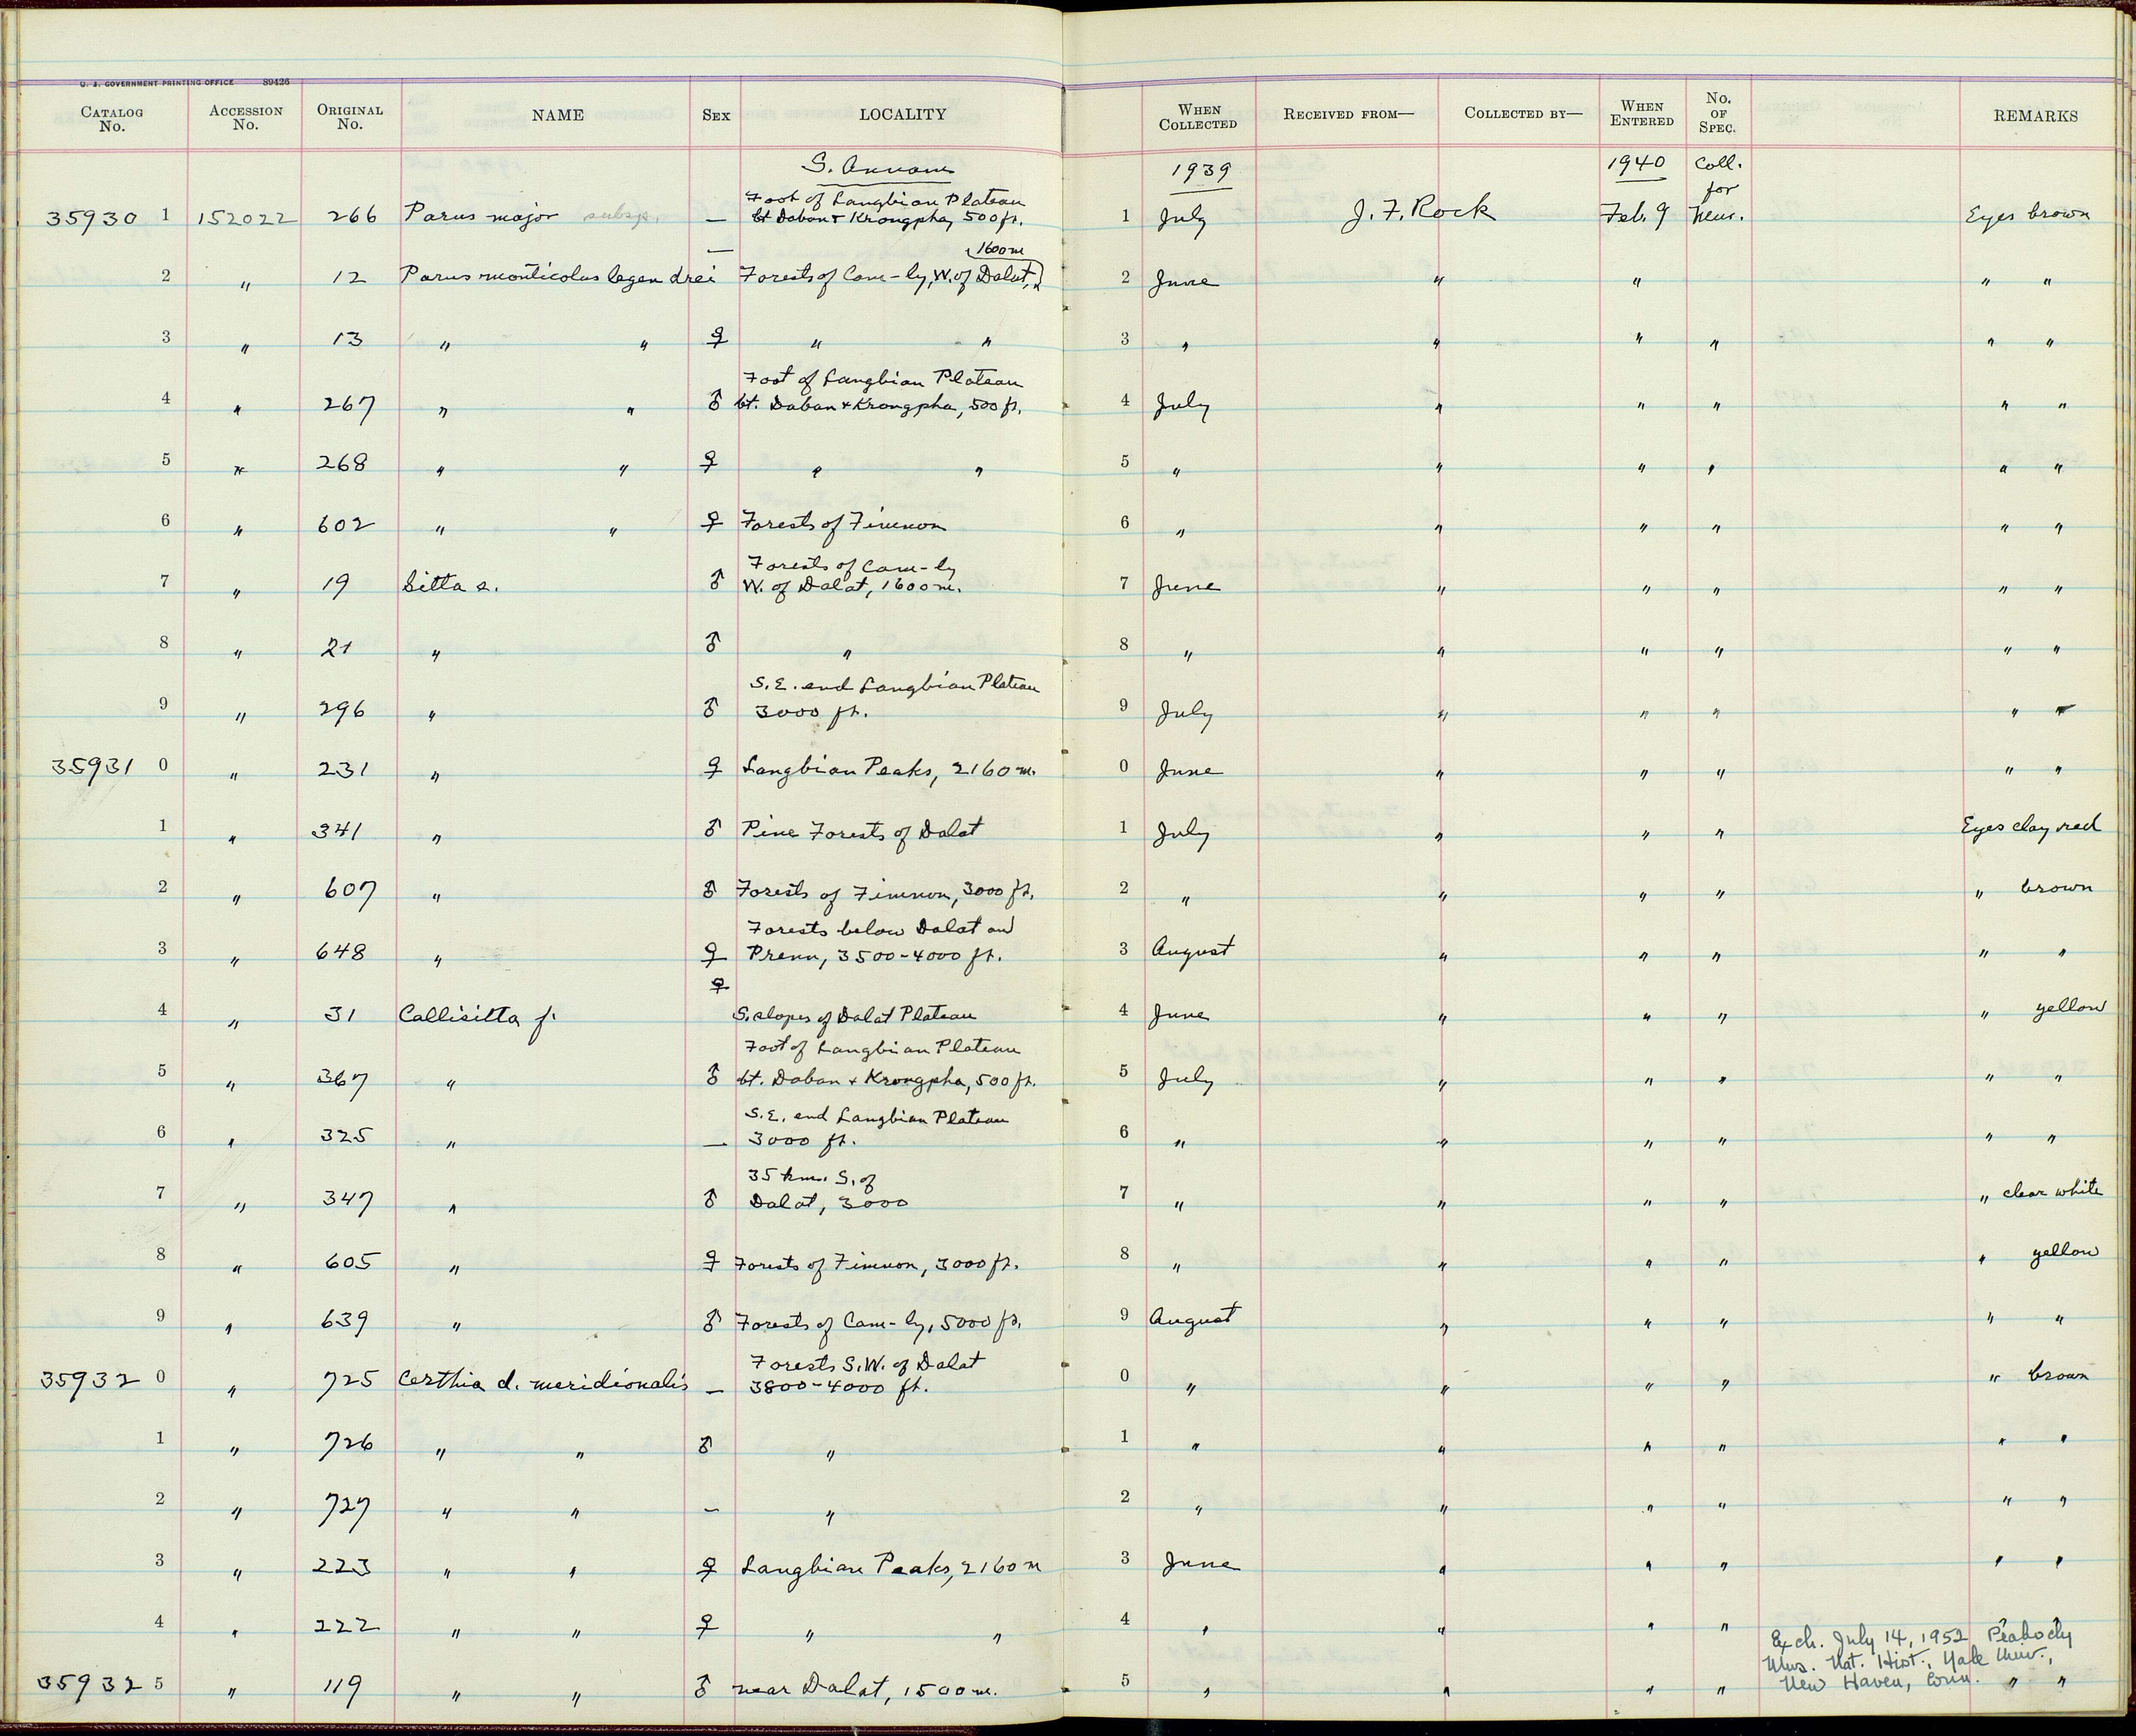 U. S. GOVERNMENT PRINTING OFFICE 89426
CATALOG No. ACCESSION No. ORIGINAL No. NAME SEX LOCALITY WHEN COLLECTED RECEIVED FROM— COLLECTED BY— WHEN ENTERED No. OF SPEC. REMARKS
S. Annam 1939 1940 Coll. for
Foot of Langbian Plateau
35930 1 152022 266 Parus major subsp. — bt Daban & Krongpha, 500 ft. 1 July J. F. Rock Feb. 9 Mus. Eyes brown
— 1600 m
2 " 12 Parus monticolus legendrei Forests of Cam-ly, W. of Dalat, 2 June " " " "
3 " 13 " " ♀ " " 3 " " " " " "
Foot of Langbian Plateau
4 " 267 " " ♂ bt. Daban & Krongpha, 500 ft. 4 July " " " " "
5 " 268 " " ♀ " " 5 " " " " " "
6 " 602 " " ♀ Forests of Fimnon 6 " " " " " "
Forests of Cam-ly
7 " 19 Sitta e. ♂ W. of Dalat, 1600 m. 7 June " " " " "
8 " 21 " ♂ " 8 " " " " " "
S. E. end Langbian Plateau
9 " 296 " ♂ 3000 ft. 9 July " " " " "
35931 0 " 231 " ♀ Langbian Peaks, 2160 m. 0 June " " " " "
1 " 341 " ♂ Pine Forests of Dalat 1 July " " " Eyes clay red
2 " 607 " ♂ Forests of Fimnon, 3000 ft. 2 " " " " " brown
Forests below Dalat and
3 " 648 " ♀ Prenn, 3500-4000 ft. 3 August " " " " "
♀
4 " 31 Callisitta f. S. slopes of Dalat Plateau 4 June " " " " yellow
Foot of Langbian Plateau
5 " 367 " ♂ bt. Daban & Krongpha, 500 ft. 5 July " " " " "
S. E. end Langbian Plateau
6 " 325 " — 3000 ft. 6 " " " " " "
35 km. S. of
7 " 347 " ♂ Dalat, 3000 7 " " " " " clear white
8 " 605 " ♀ Forests of Fimnon, 3000 ft. 8 " " " " " yellow
9 " 639 " ♂ Forests of Cam-ly, 5000 ft. 9 August " " " " "
Forests S.W. of Dalat
35932 0 " 725 Certhia d. meridionalis — 3800-4000 ft. 0 " " " " " brown
1 " 726 " " ♂ " 1 " " " " " "
2 " 727 " " — " 2 " " " " " "
3 " 223 " " ♀ Langbian Peaks, 2160 m 3 June " " " " "
4 " 222 " " ♀ " " 4 " " " " " "
Exch. July 14, 1952 Peabody
Mus. Nat. Hist., Yale Univ.,
35932 5 " 119 " " ♂ near Dalat, 1500 m. 5 " " " " New Haven, Conn. " "